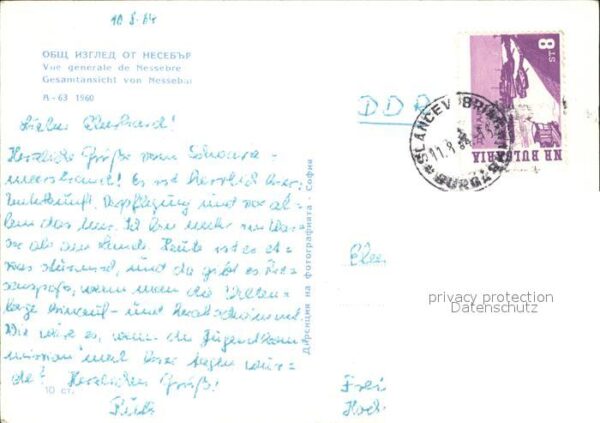 10.8.64
ОБЩ ИЗГЛЕД ОТ НЕСЕБЪР
Vue generale de Nessebre
Gesamtansicht von Nessebar
А-63 1960
Lieber Eberhard!
Herzliche Grüße vom Schwarz-
meerstrand! Es ist herrlich hier.
Unterkunft, Verpflegung und vor al-
lem das Meer. Ich bin mehr im Was-
ser als an Land. Heute ist es et-
was stürmend, und da gibt es Rie-
senspaß, wenn man die Wellen-
berge hinauf- und herabschwimmt.
Wie wär es, wenn die Jugendkom-
mission mal hier tagen wür-
de? Herzlichen Gruß!
Ruth
10 ст.
Дирекция на фотографията - София
DDR
SLANCEV BRIAG
11.8.64
BURGAS
8 ST
NR BULGARIA
privacy protection
Datenschutz
Frei
Hoch